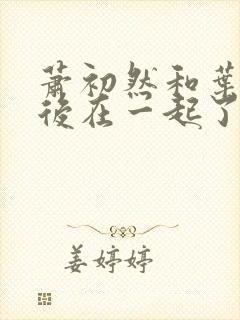 萧初然和葉
後在一起了
姜婷婷